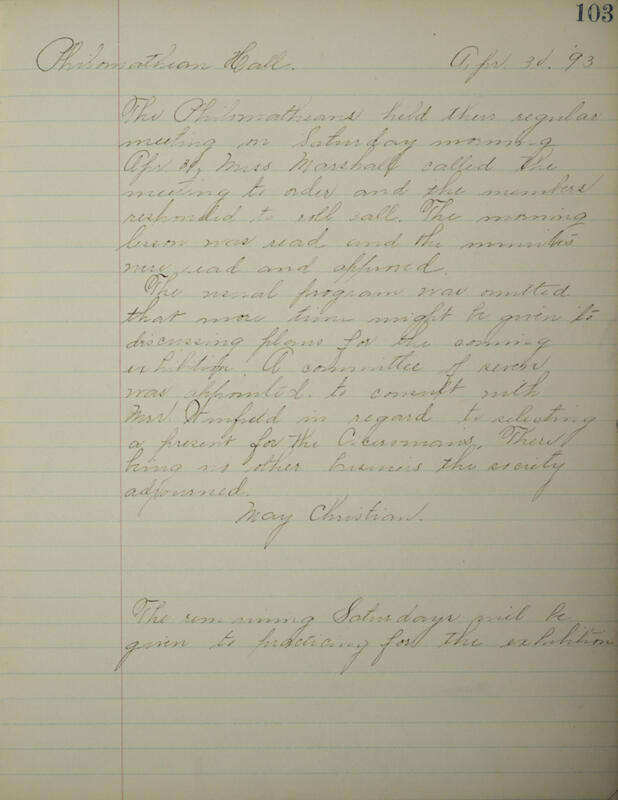 103
Philomathian Hall. Apr. 3d. '93
The Philomatheans held their regular
meeting on Saturday morning
Apr. 3d, Miss Marshall called the
meeting to order and the members
responded to roll call. The morning
lesson was read and the minutes
were read and approved.
The usual program was omitted
that more time might be given to
discussing plans for the coming
exhibition. A committee of seven
was appointed to consult with
Mrs. in regard to selecting
a present for the Ciceronians. There
being no other business the society
adjourned.
May Christian.
The remaining Saturdays will be
given to practicing for the exhibition